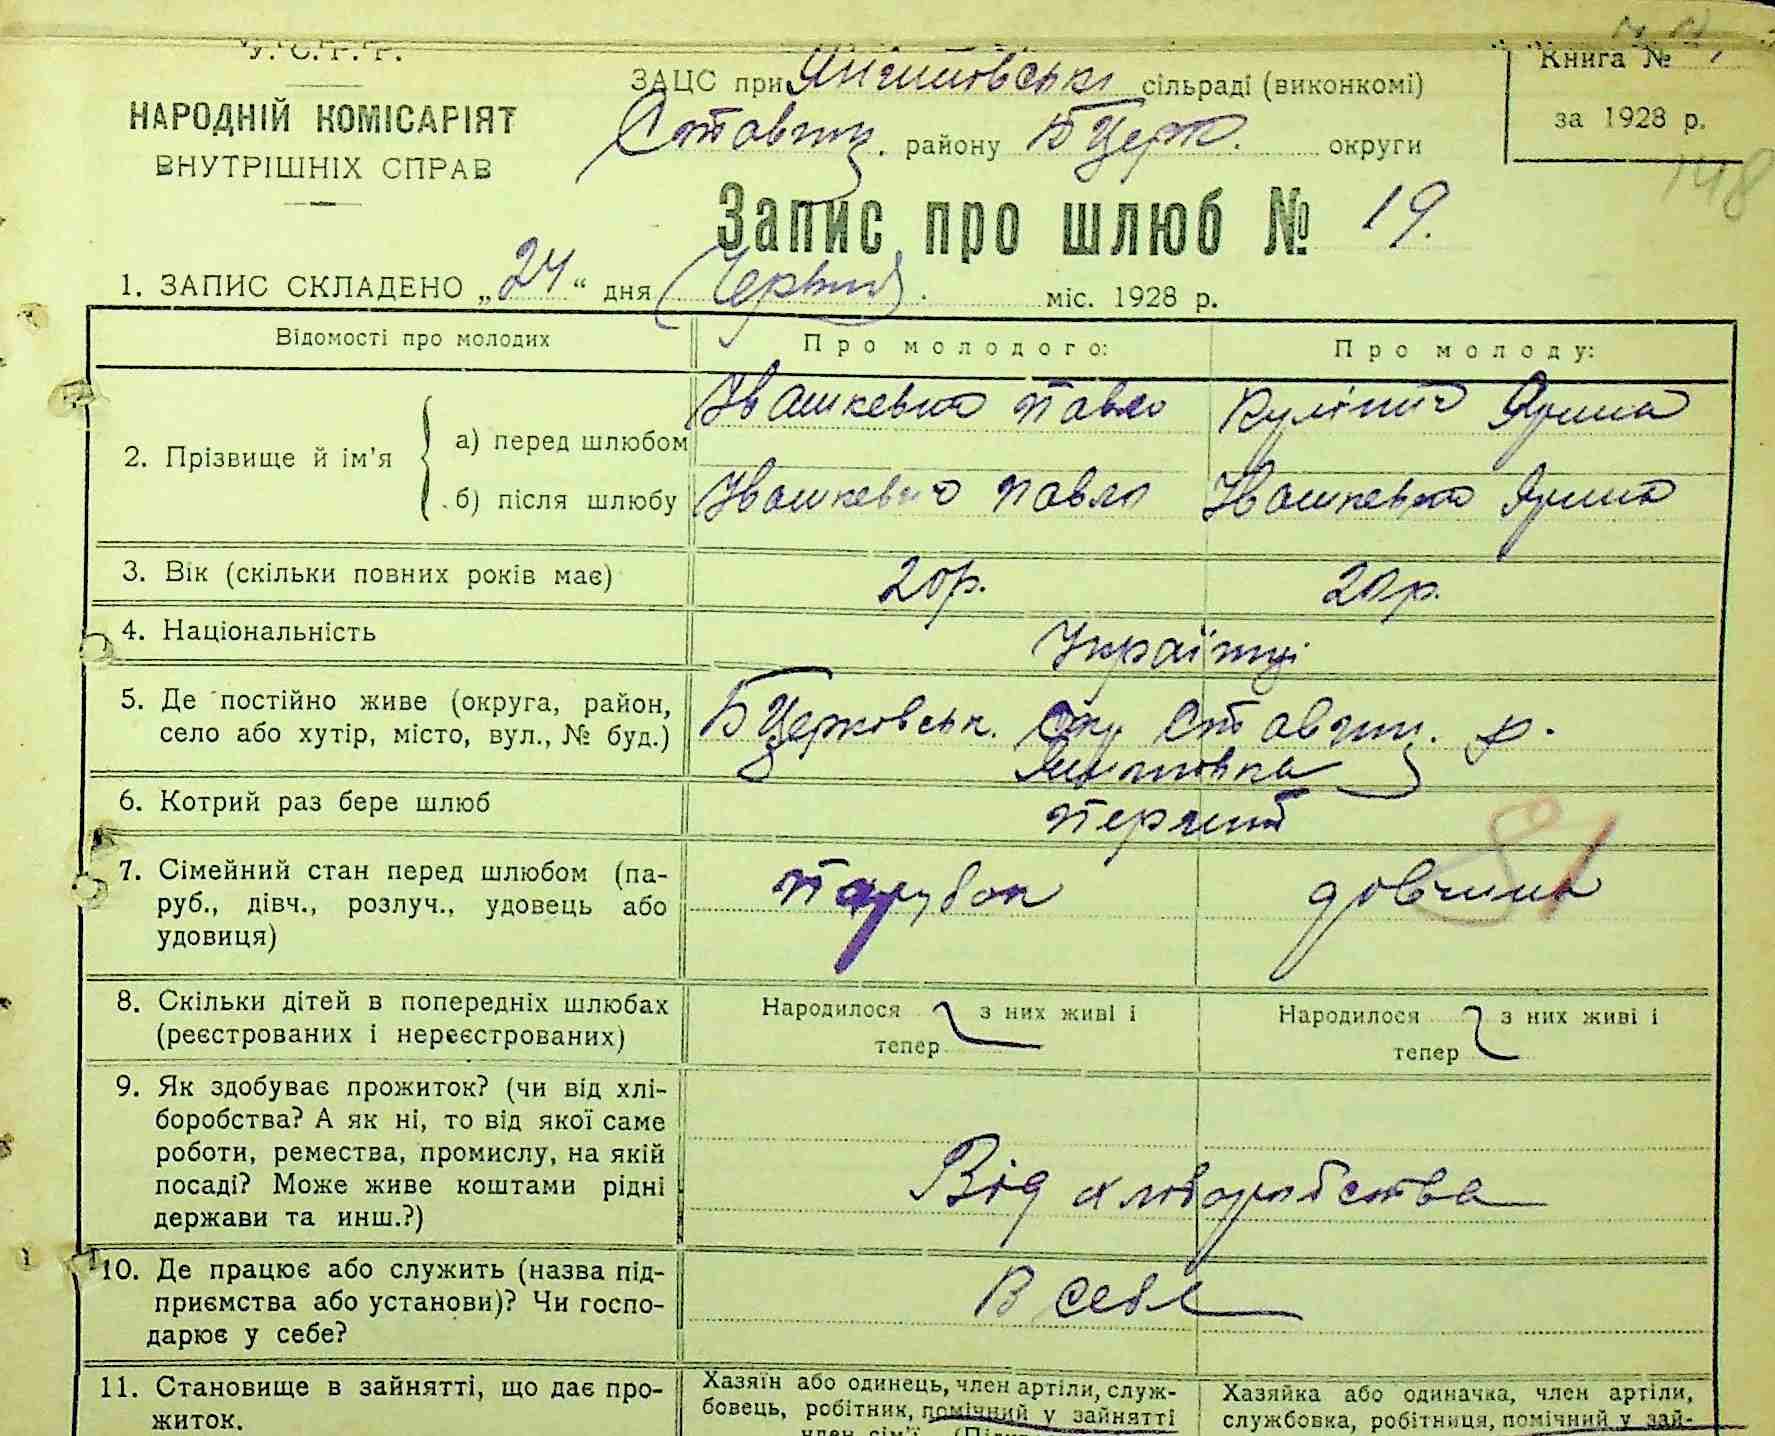 У. С. Р. Р.
НАРОДНІЙ КОМІСАРІЯТ
ВНУТРІШНІХ СПРАВ
ЗАЦС при Янишовські сільраді (виконкомі)
Ставищ. району БЦерк. округи
Книга №
за 1928 р.
148
Запис про шлюб № 19.
1. ЗАПИС СКЛАДЕНО „24“ дня Червня міс. 1928 р.
Відомості про молодих
Про молодого:
Про молоду:
2. Прізвище й ім'я
а) перед шлюбом
Івашкевич Павло
Кулінич Ярина
б) після шлюбу
Івашкевич Павло
Івашкевич Ярина
3. Вік (скільки повних років має)
20р.
20р.
4. Національність
Українці
5. Де постійно живе (округа, район,
село або хутір, місто, вул., № буд.)
БЦерковськ. Окр Ставищ. р.
Янишовка
6. Котрий раз бере шлюб
перший
7. Сімейний стан перед шлюбом (па-
руб., дівч., розлуч., удовець або
удовиця)
Парубок
дівчина
81
8. Скільки дітей в попередніх шлюбах
(реєстрованих і нереєстрованих)
Народилося з них живі і
тепер
Народилося з них живі і
тепер
9. Як здобуває прожиток? (чи від хлі-
боробства? А як ні, то від якої саме
роботи, ремества, промислу, на якій
посаді? Може живе коштами рідні
держави та инш.?)
Від хліборобства
10. Де працює або служить (назва під-
приємства або установи)? Чи госпо-
дарює у себе?
В себе
11. Становище в зайнятті, що дає про-
житок.
Хазяїн або одинець, член артіли, служ-
бовець, робітник, помічний у зайнятті
член сім'ї.
Хазяйка або одиначка, член артіли,
службовка, робітниця, помічний у зай-